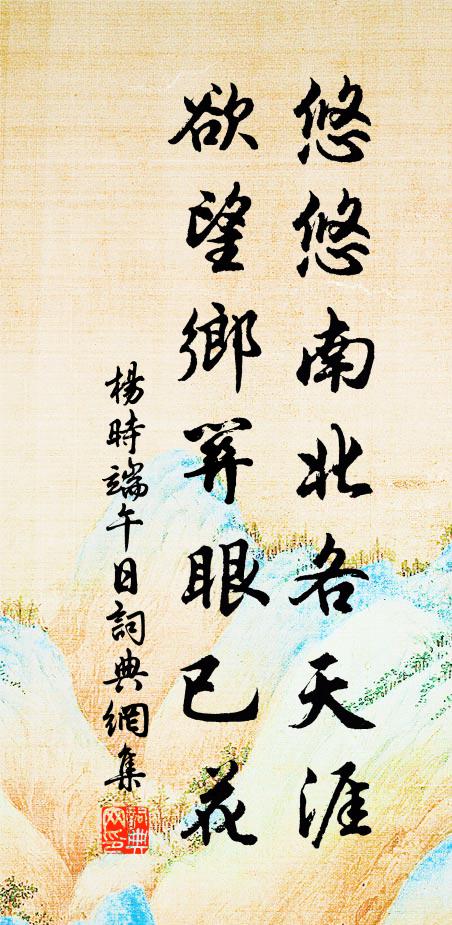 悠悠南北各天涯
欲望鄉關眼已花
楊時端午日詞典網集
詞典
网印